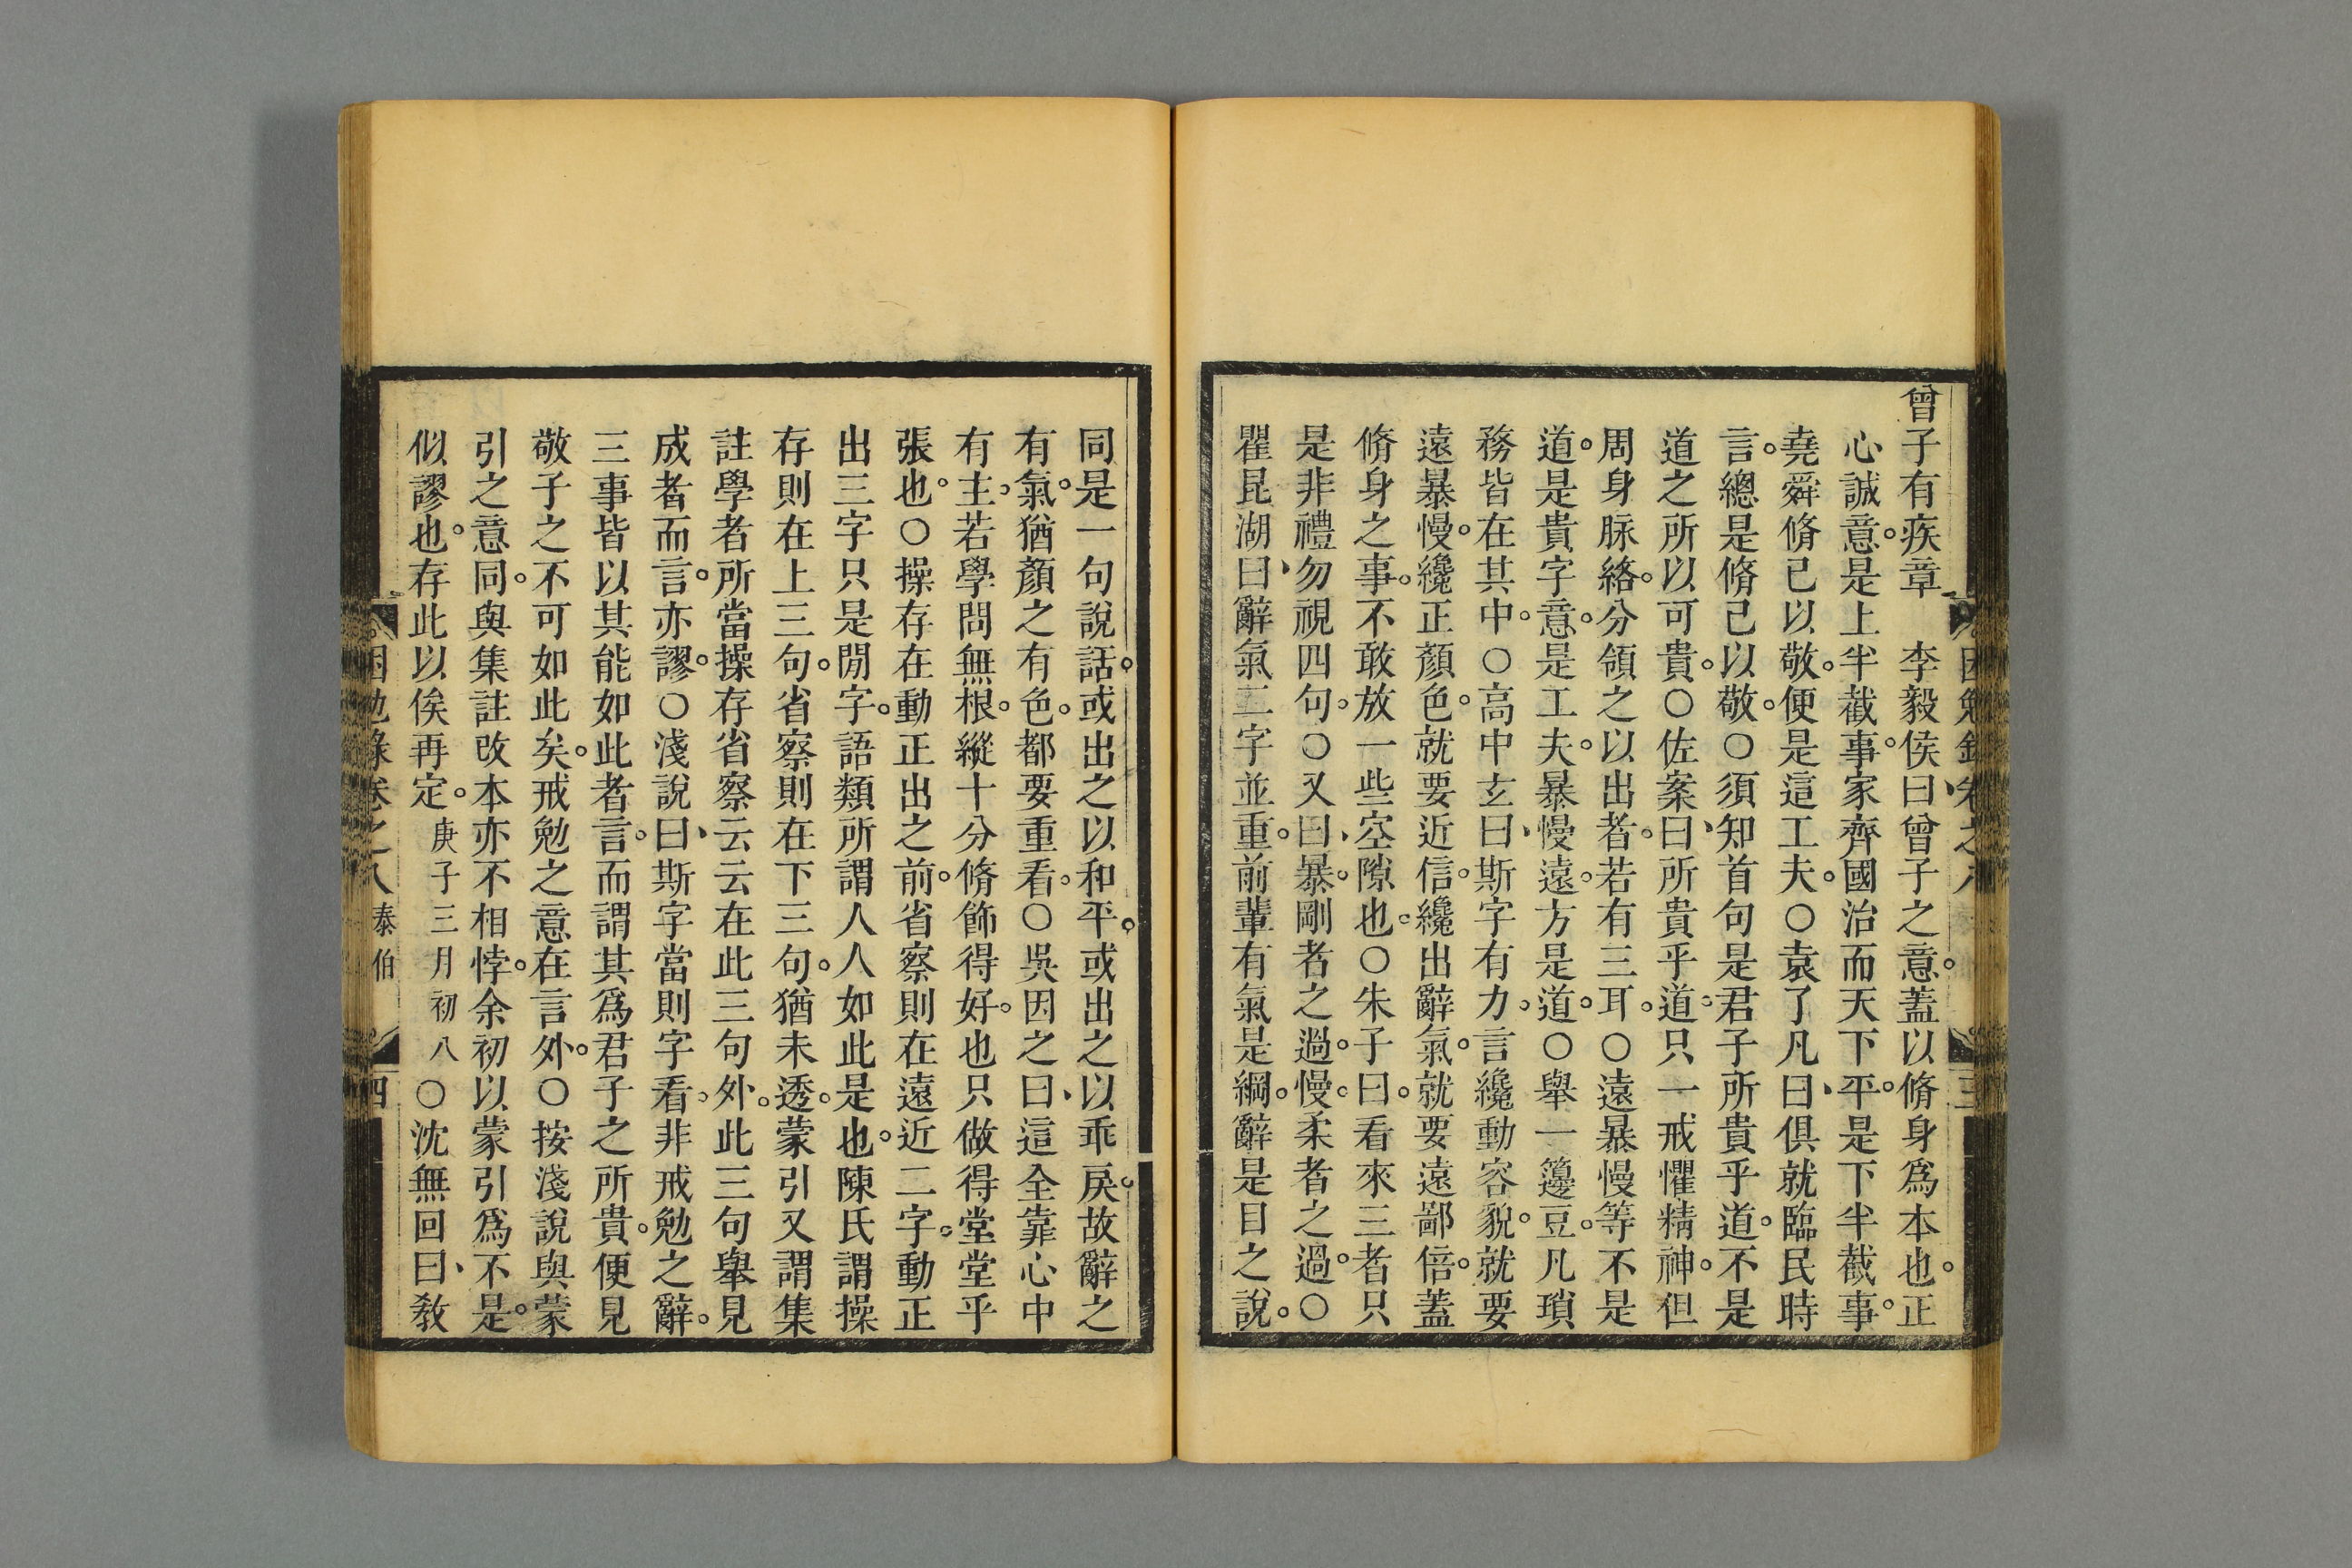 曾子有疾章　李毅侯曰、曾子之意。蓋以脩身爲本也。正
心誠意。是上半截事。家齊國治而天下平。是下半截事。
堯舜脩己以敬。便是這工夫。○袁了凡曰、俱就臨民時
言。總是脩己以敬。○須知首句是君子所貴乎道。不是
道之所以可貴。○佐案曰、所貴乎道。只一戒懼精神。但
周身脉絡。分領之以出者。若有三耳。○遠暴慢等不是
道。是貴字意。是工夫。暴慢遠。方是道。○舉一籩豆。凡瑣
務皆在其中。○高中玄曰、斯字有力。言纔動容貌。就要
遠暴慢。纔正顏色。就要近信。纔出辭氣。就要遠鄙倍。蓋
脩身之事。不敢放一些空隙也。○朱子曰。看來三者只
是非禮勿視四句。○又曰、暴。剛者之過。慢。柔者之過。○
瞿昆湖曰、辭氣二字並重。前輩有氣是綱。辭是目之說。
困勉錄卷之八　三
同是一句說話。或出之以和平。或出之以乖戾。故辭之
有氣。猶顏之有色。都要重看。○吳因之曰、這全靠心中
有主。若學問無根。縱十分脩飾得好。也只做得堂堂乎
張也。○操存在動正出之前。省察則在遠近二字。動正
出三字只是閒字。語類所謂人人如此是也。陳氏謂操
存則在上三句。省察則在下三句。猶未透。蒙引又謂集
註學者所當操存省察云云在此三句外。此三句舉見
成者而言。亦謬。○淺說曰、斯字當則字看。非戒勉之辭。
三事皆以其能如此者言。而謂其爲君子之所貴。便見
敬子之不可如此矣。戒勉之意在言外。○按淺說與蒙
引之意同。與集註改本亦不相悖。余初以蒙引爲不是。
似謬也。存此以俟再定。庚子三月初八○沈無回曰、敎
困勉錄卷之八　泰伯　四